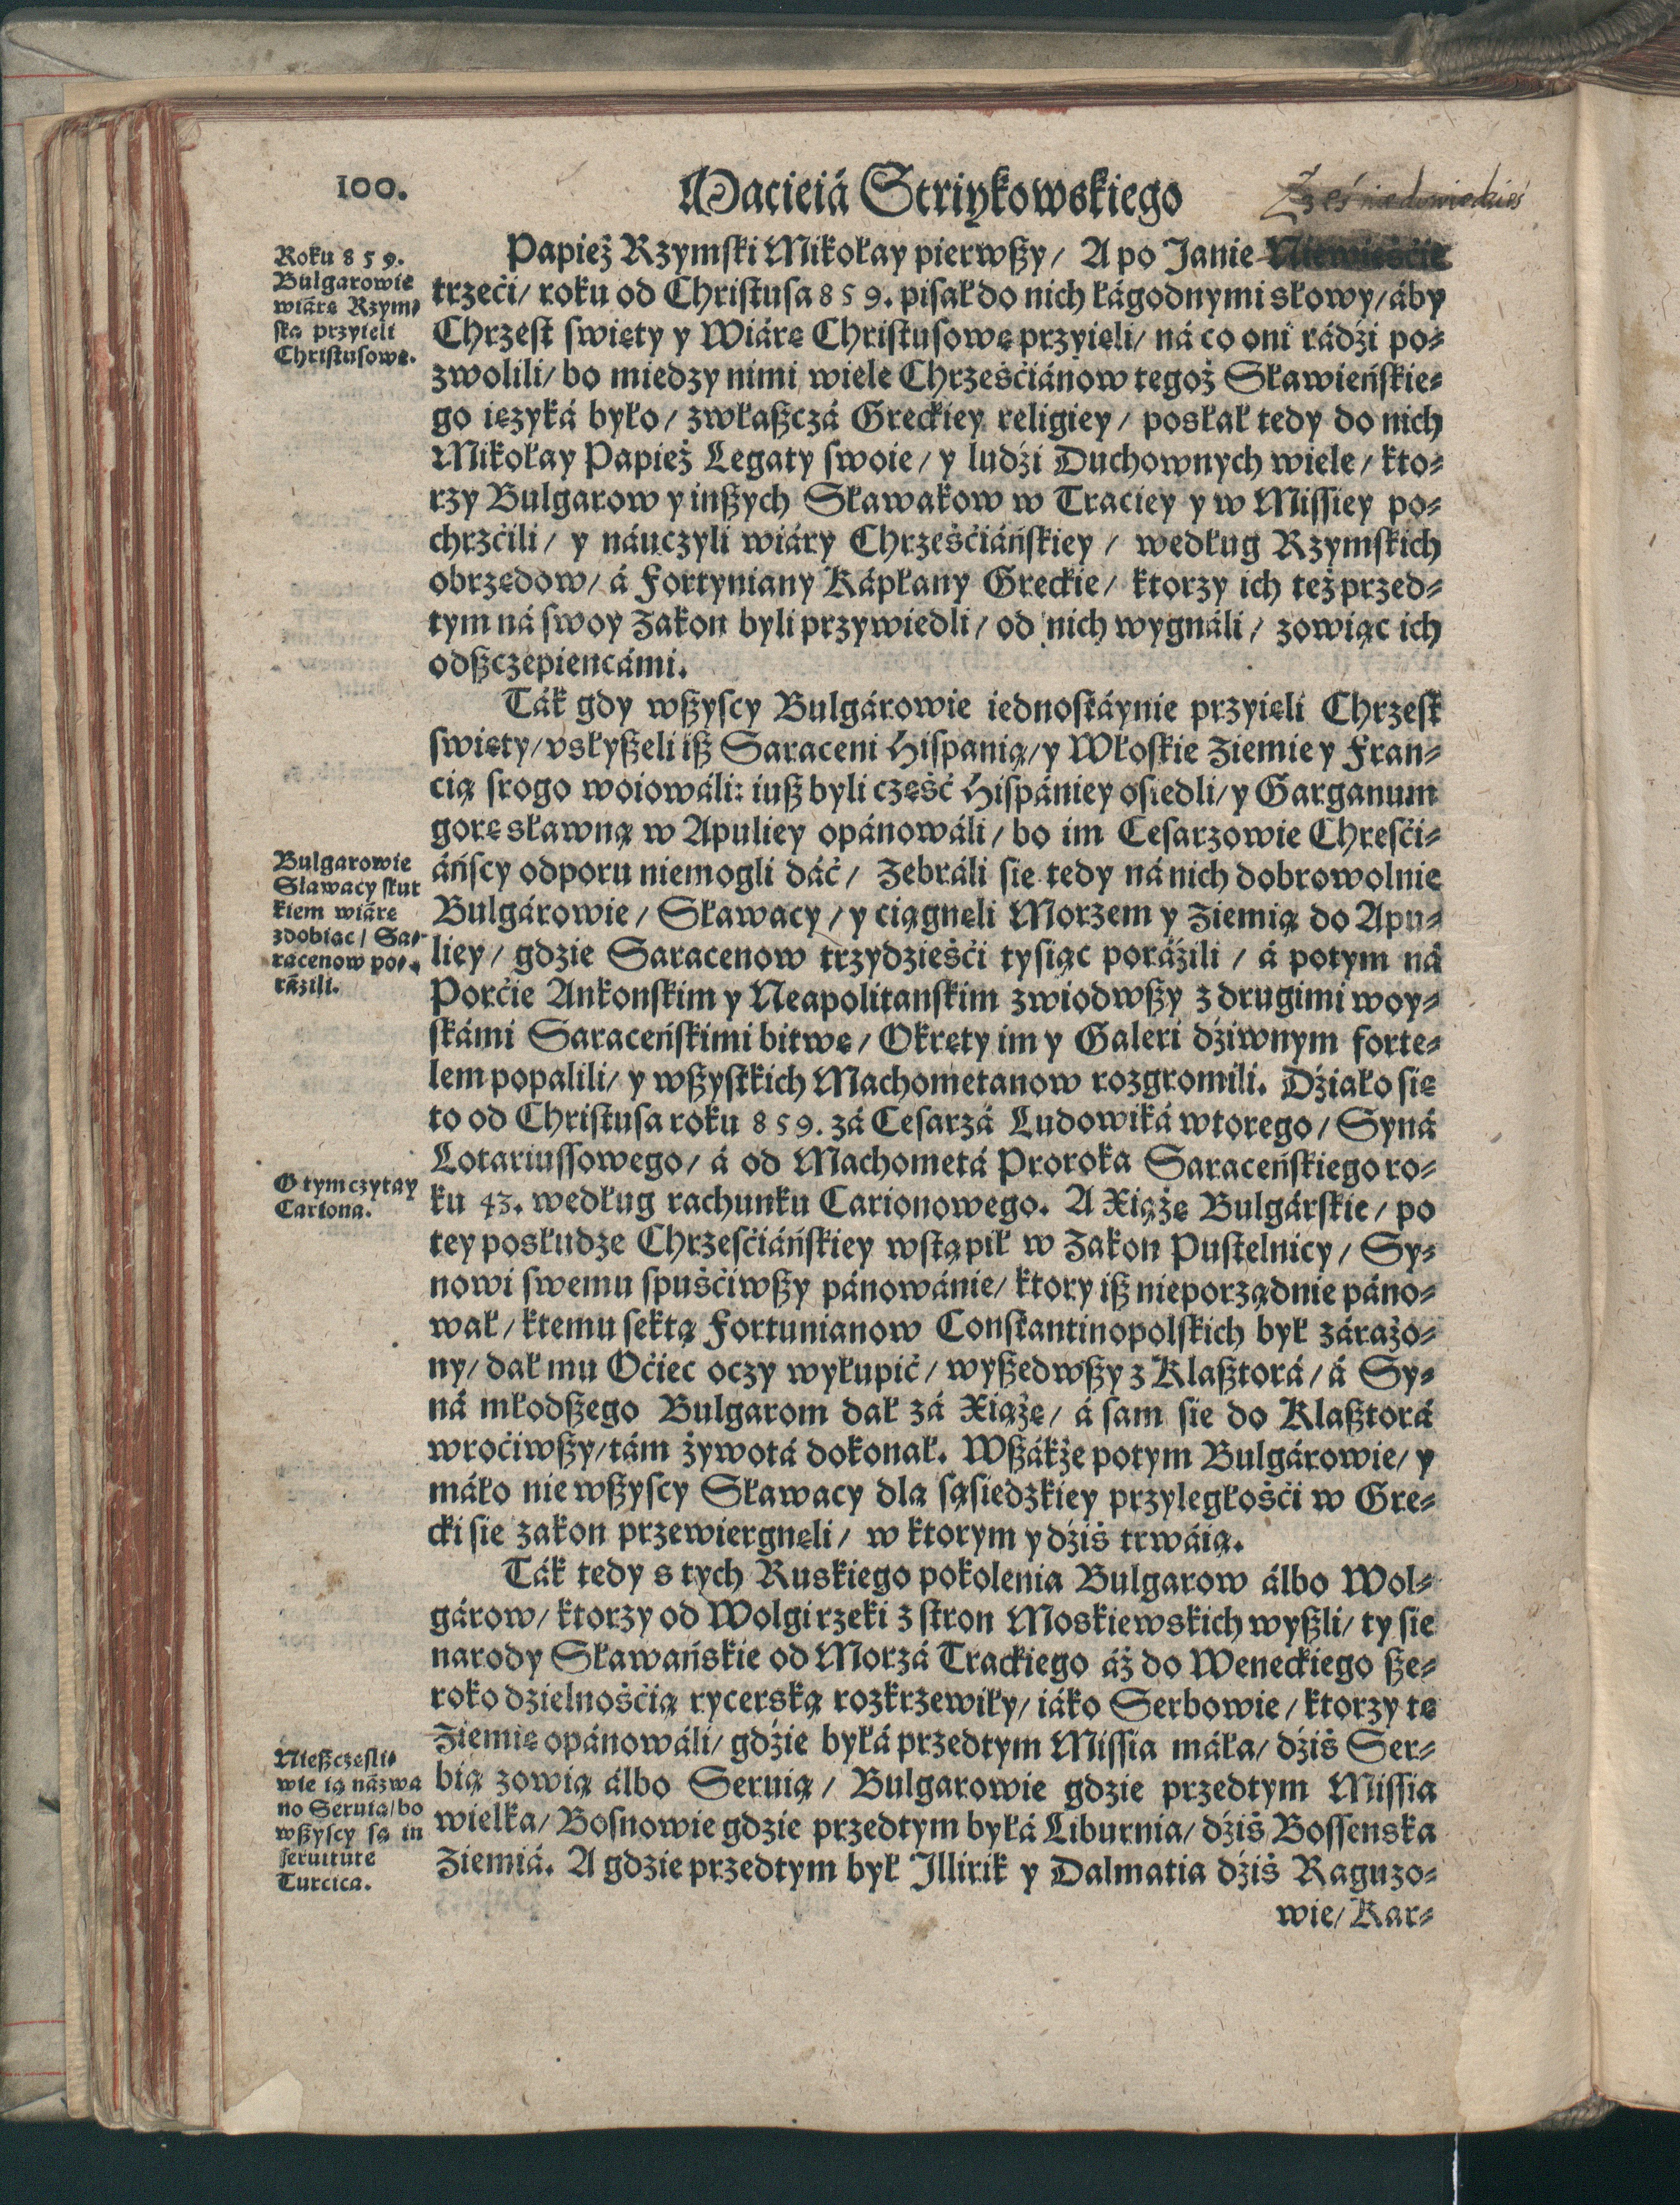 100.
Macieiá Striykowskiego
Roku 859.
Bulgarowie
wiárę Rzym-
ską przyieli
Christusowę.
Papież Rzymski Mikołay pierwßy/ A po Janie Niewieśćie
trzeći/ roku od Christusa 859. pisał do nich łágodnymi słowy/ áby
Chrzest swięty y Wiárę Christusowę przyięli/ ná co oni rádźi po-
zwolili/ bo miedzy nimi wiele Chrześćiánow tegoż Sławieńskie-
go ięzyká było/ zwłaßczá Greckiey religiey/ posłał tedy do nich
Mikołay Papież Legaty swoie/ y ludźi Duchownych wiele/ kto-
rzy Bulgarow y inßych Sławakow w Traciey y w Missiey po-
chrzćili/ y náuczyli wiáry Chrześćiáńskiey/ według Rzymskich
obrzędow/ á Fortyniany Kápłany Greckie/ ktorzy ich też przed-
tym ná swoy Zakon byli przywiedli/ od nich wygnáli/ zowiąc ich
odßczepiencámi.
Ták gdy wßyscy Bulgárowie iednostáynie przyięli Chrzest
swięty/ vsłyßeli iß Saraceni Hispanią/ y Włoskie Ziemie y Fran-
cią srogo woiowáli: iuß byli część Hispániey osiedli/ y Garganum
gorę sławną w Apuliey opánowáli/ bo im Cesarzowie Chresći-
áńscy odporu niemogli dáć/ Zebráli się tedy ná nich dobrowolnie
Bulgárowie/ Sławacy/ y ciągnęli Morzem y Ziemią do Apu-
liey/ gdzie Saracenow trzydzieśći tysiąc poráźili/ á potym ná
Porćie Ankonskim y Neapolitanskim zwiodwßy z drugimi woy-
skámi Saraceńskimi bitwę/ Okręty im y Galeri dźiwnym forte-
lem popalili/ y wßystkich Machometanow rozgromili. Dźiało się
to od Christusa roku 859. zá Cesarzá Ludowiká wtorego/ Syná
Lotariussowego/ á od Machometá Proroka Saraceńskiego ro-
ku 43. według rachunku Carionowego. A Xiążę Bulgárskie/ po
tey posłudze Chrzesćiáńskiey wstąpił w Zakon Pustelnicy/ Sy-
nowi swemu spuśćiwßy pánowánie/ ktory iß nieporządnie páno-
wał/ ktemu sektą Fortunianow Constantinopolskich był záráżo-
ny/ dał mu Oćiec oczy wyłupić/ wyßedwßy z Klaßtorá/ á Sy-
ná młodßego Bulgarom dał zá Xiążę/ á sam się do Klaßtorá
wroćiwßy/ tám żywotá dokonał. Wßákże potym Bulgárowie/ y
máło nie wßyscy Sławacy dla sąsiedzkiey przyległośći w Gre-
cki się zakon przewiergnęli/ w ktorym y dźiś trwáią.
Ták tedy s tych Ruskiego pokolenia Bulgarow álbo Wol-
gárow/ ktorzy od Wolgi rzeki z stron Moskiewskich wyßli/ ty się
narody Sławańskie od Morzá Trackiego áż do Weneckiego ße-
roko dzielnośćią rycerską rozkrzewiły/ iáko Serbowie/ ktorzy tę
Ziemię opánowáli/ gdźie byłá przedtym Missia máła/ dźiś Ser-
bią zowią álbo Seruią/ Bulgarowie gdzie przedtym Missia
wielka/ Bosnowie gdzie przedtym byłá Liburnia/ dźiś Bossenska
Ziemiá. A gdzie przedtym był Illirik y Dalmatia dźiś Raguzo-
wie/ Kar-
Bulgarowie
Sławacy skut
kiem wiárę
zdobiąc/ Sa-
racenow po-
ráźili.
O tym czytay
Cariona.
Nießczęsli-
wie ią názwa
no Seruia/ bo
wßyscy są in
seruitute
Turcica.